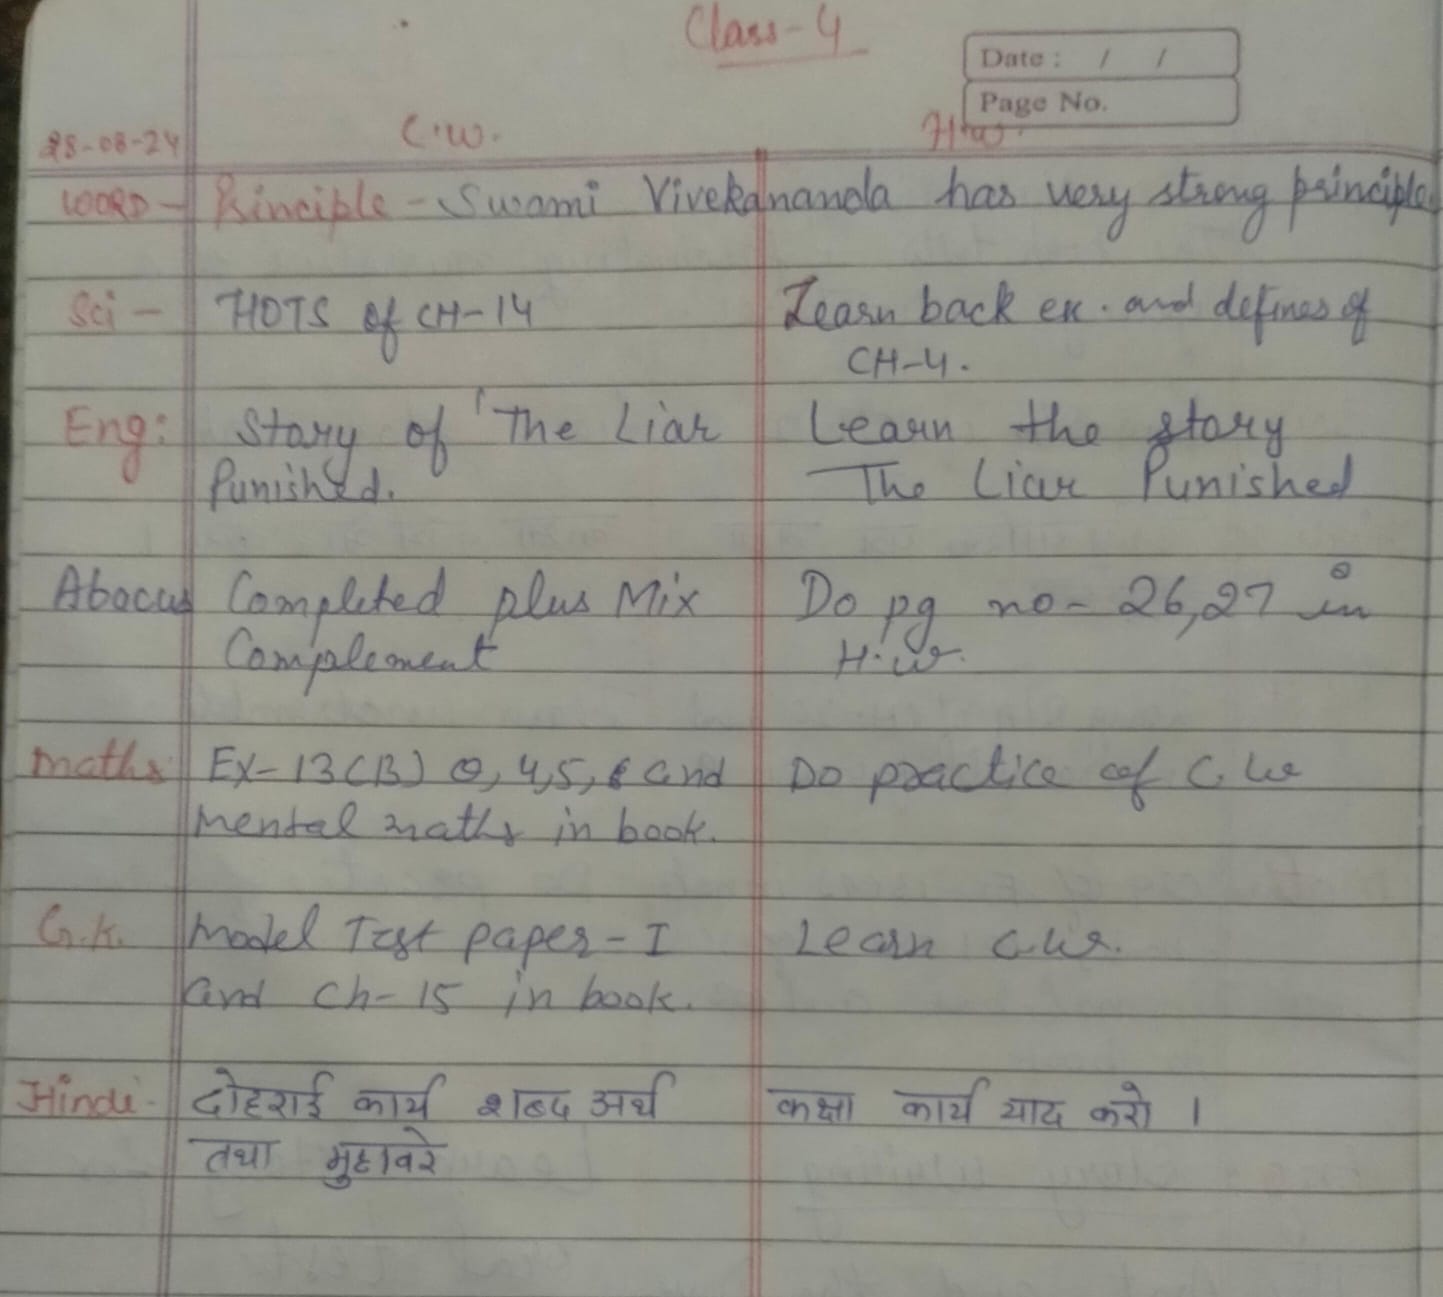 Class-4
Date : / /
Page No.
28-08-24 C.W. H.W.
WORD - Principle - Swami Vivekananda has very strong principle
Sci - HOTS of CH-14 Learn back ex. and defines of
CH-4.
Eng: Story of 'The Liar Learn the story
Punished. The Liar Punished
Abacus Completed plus Mix Do pg no- 26,27 in
Complement H.W.
Maths Ex-13(B) Q, 4,5, 6 and Do practice of C.W
Mental maths in book.
G.K. Model Test paper-I Learn C.W.
and Ch-15 in book.
Hindi- दोहराई कार्य शब्द अर्थ कक्षा कार्य याद करो ।
तथा मुहावरे